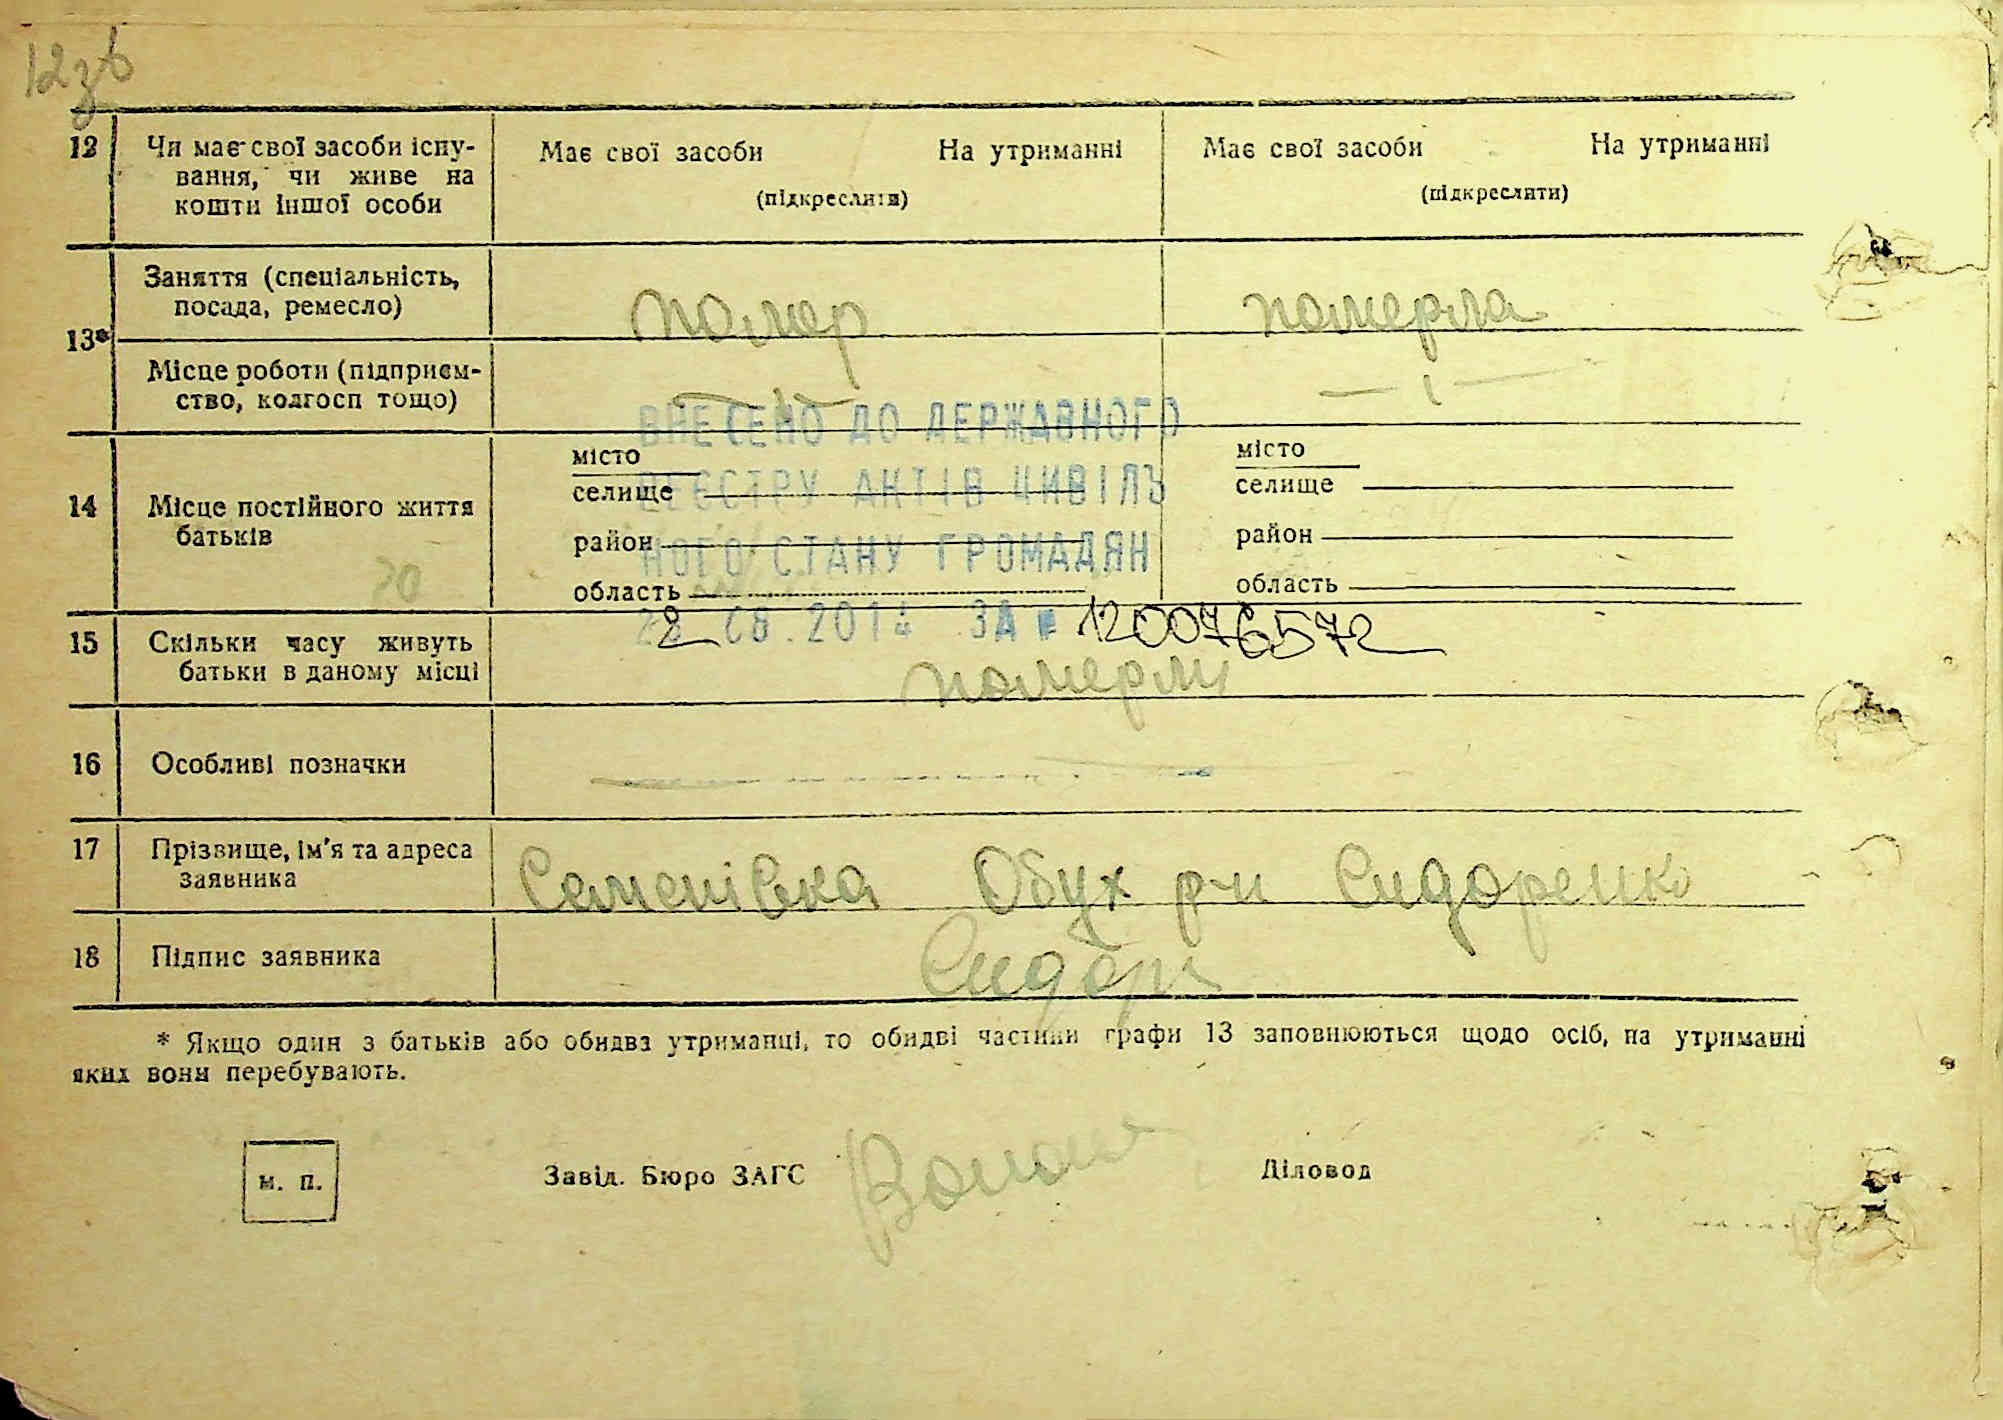 12зв
12 Чи має свої засоби існу- Має свої засоби На утриманні Має свої засоби На утриманні
вання, чи живе на (підкреслити) (підкреслити)
кошти іншої особи
Заняття (спеціальність,
посада, ремесло) помер померла
13*
Місце роботи (підприєм-
ство, колгосп тощо)
ВНЕСЕНО ДО ДЕРЖАВНОГО
місто місто
РЕЄСТРУ АКТІВ ЦИВІЛЬ
селище селище
14 Місце постійного життя
батьків
район район
НОГО СТАНУ ГРОМАДЯН
20
область область
2014 ЗА № 120076572
15 Скільки часу живуть
батьки в даному місці померли
16 Особливі позначки
17 Прізвище, ім'я та адреса
заявника Семенівка Обух р-н Сидоренко
18 Підпис заявника Сидор
* Якщо один з батьків або обидва утриманці, то обидві частини графи 13 заповнюються щодо осіб, на утриманні
яких вони перебувають.
м. п. Завід. Бюро ЗАГС Діловод